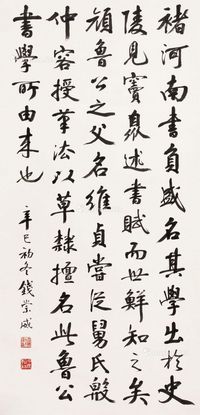 褚河南書負盛名其學出於史
陵見竇臮述書賦而世鮮知之矣
顏魯公之父名維貞嘗從舅氏殷
仲容授筆法以草隸擅名此魯公
書學所由來也
辛巳初冬錢崇威